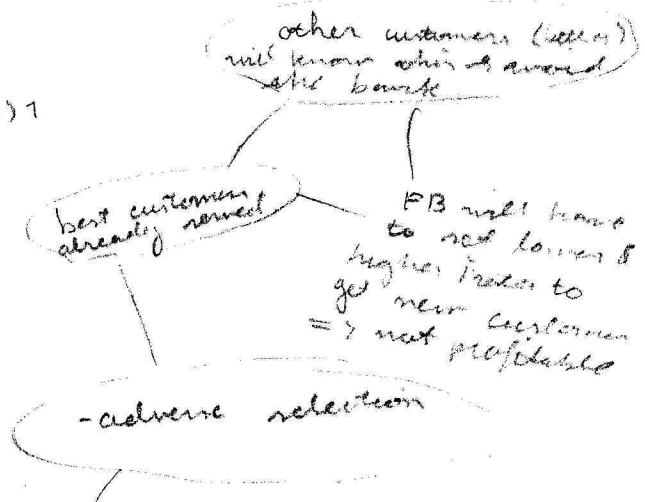 other customers (better)
will know this & avoid
the bank
best customers
already served
FB will have
to set lower &
higher to
get new customers
=> not profitable
-adverse selection